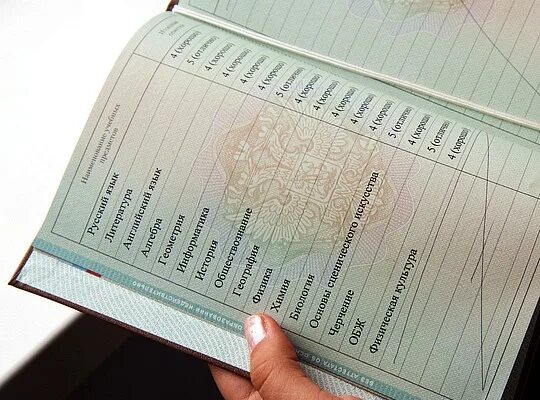 Наименование учебных
предметов
Русский язык 4 (хорошо)
Литература 5 (отлично)
Английский язык 4 (хорошо)
Алгебра 4 (хорошо)
Геометрия 4 (хорошо)
Информатика 4 (хорошо)
История 5 (отлично)
Обществознание 4 (хорошо)
География 4 (хорошо)
Физика 4 (хорошо)
Химия 4 (хорошо)
Биология 4 (хорошо)
Основы сценического искусства 5 (отлично)
Черчение 4 (хорошо)
ОБЖ 5 (отлично)
Физическая культура 4 (хорошо)
ОБРАЗОВАНИИ НЕДЕЙСТВИТЕЛЬНО
БЕЗ АТТЕСТАТА ОБ